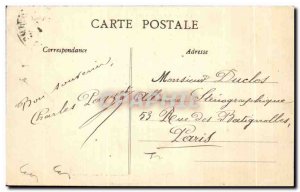 CARTE POSTALE
Correspondance
Adresse
Bon souvenir,
Charles
Monsieur Duclos
Sténographique
53 Rue des Batignolles,
Paris